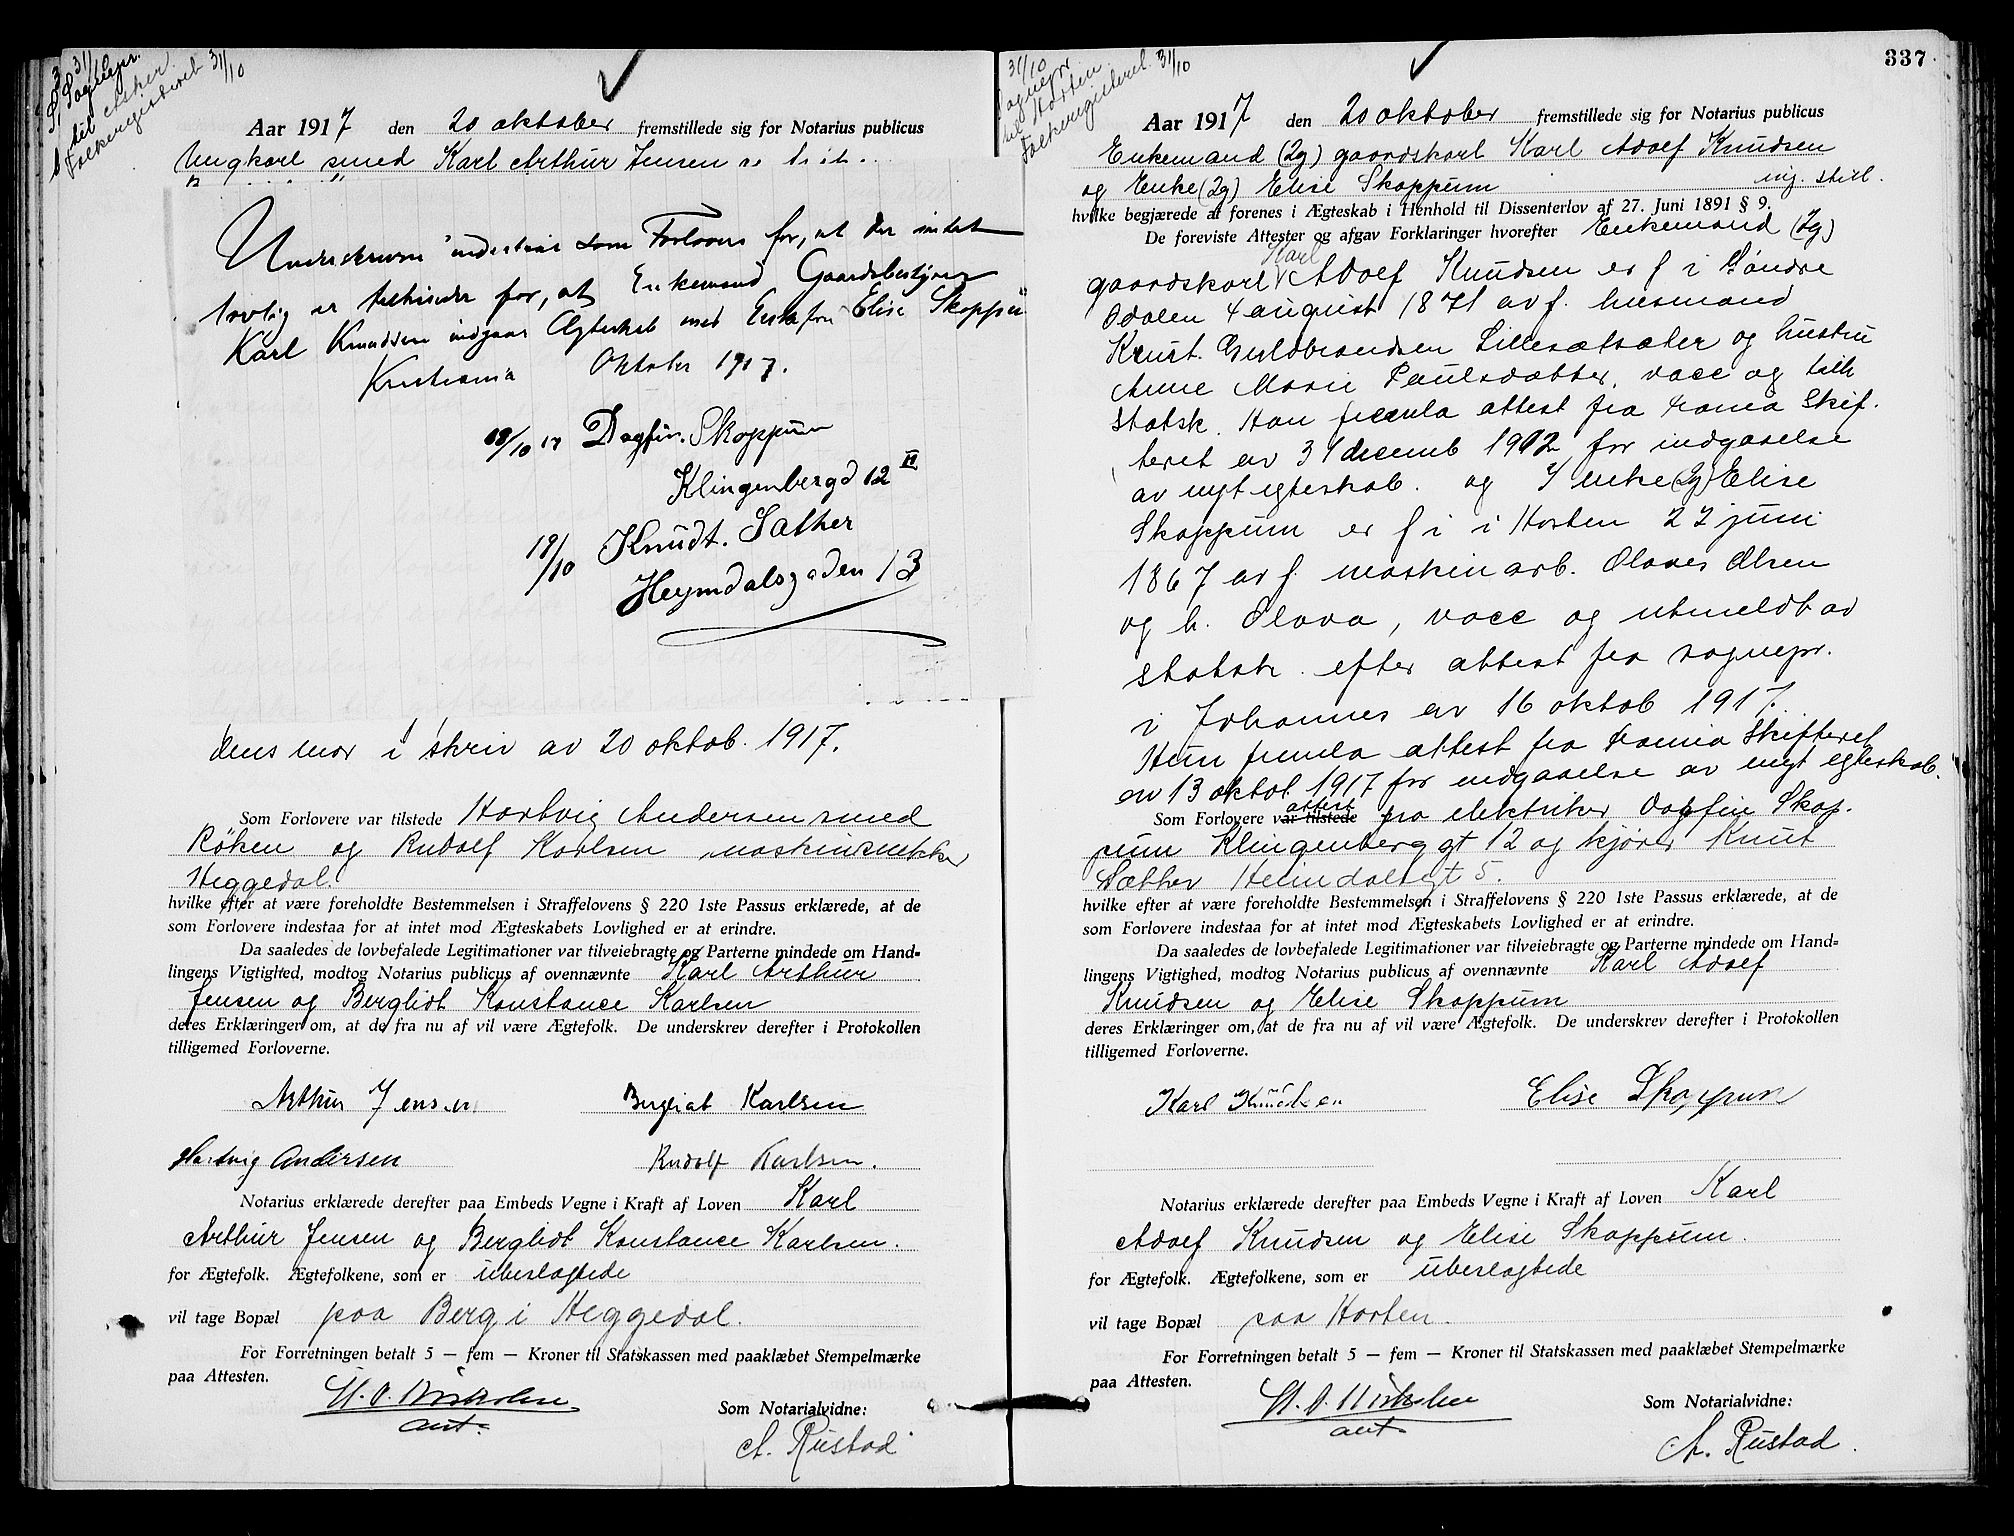 31/10
Sognepr.
til Asker
Folkeregisteret 31/10
Aar 1917 den 20 oktober fremstillede sig for Notarius publicus
Ungkarl smed Karl Arthur Jensen
Underskrevne indestaar som Forlovere for, at der intet
lovlig er tilhinder for, at Enkemand Gaardsbestyrer
Karl Knudsen indgaar Ægteskab med Enkefru Elise Skoppum
Kristiania Oktober 1917.
18/10 17 Dagfin. Skoppum
Klingenbergd 12 II
18/10 Knudt. Sæther
Heymdalsgaden 13
dens mor i skriv av 20 oktob. 1917.
Som Forlovere var tilstede Hartvig Andersen smed
Röken og Rudolf Karlsen maskinsnekker
Heggedal.
hvilke efter at være foreholdte Bestemmelsen i Straffelovens § 220 1ste Passus erklærede, at de
som Forlovere indestaa for at intet mod Ægteskabets Lovlighed er at erindre.
Da saaledes de lovbefalede Legitimationer var tilveiebragte og Parterne mindede om Hand-
lingens Vigtighed, modtog Notarius publicus af ovennævnte Karl Arthur
Jensen og Bergliot Konstance Karlsen
deres Erklæringer om, at de fra nu af vil være Ægtefolk. De underskrev derefter i Protokollen
tilligemed Forloverne.
Arthur Jensen Bergliot Karlsen
Hartvig Andersen Rudolf Karlsen.
Notarius erklærede derefter paa Embeds Vegne i Kraft af Loven Karl
Arthur Jensen og Bergliot Konstance Karlsen.
for Ægtefolk. Ægtefolkene, som er ubeslagtede
vil tage Bopæl paa Berg i Heggedal.
For Forretningen betalt 5 — fem — Kroner til Statskassen med paaklæbet Stempelmærke
paa Attesten.
aut.
Som Notarialvidne:
A. Rustad
337
31/10
Sognepr.
til Horten
Folkeregisteret 31/10
Aar 1917 den 20 oktober fremstillede sig for Notarius publicus
Enkemand (2g) gaardskarl Karl Adolf Knudsen
og Enke (2g) Elise Skoppum ing. still.
hvilke begjærede at forenes i Ægteskab i Henhold til Dissenterlov af 27. Juni 1891 § 9.
De foreviste Attester og afgav Forklaringer hvorefter Enkemand (2g)
gaardskarl Karl Adolf Knudsen er f i Söndre
Odalen 4 august 1871 av f. husmand
Krist. Guldbrandsen Lillesætsæter og hustru
Anne Marie Paulsdatter, vacc og tilh
statsk. Han fremla attest fra Krania Skif.
teret av 31 decemb 1912 for indgaaelse
av nyt egteskab. og enke (2g) Elise
Skoppum er f i i Horten 27 juni
1867 av f. maskinarb. Olaves Olsen
og h. Olava, vacc og utmeldt av
statsk. efter attest fra sognepr.
i Johannes av 16 oktob 1917.
Hun fremla attest fra Krania Skifteret
av 13 oktob. 1917 for indgaaelse av nyt egteskab.
Som Forlovere var tilstede attest fra elektriker Dagfin Skop-
pum Klingenberggt 12 og kjører Knut
Sæther Heimdalsgt 5.
hvilke efter at være foreholdte Bestemmelsen i Straffelovens § 220 1ste Passus erklærede, at de
som Forlovere indestaa for at intet mod Ægteskabets Lovlighed er at erindre.
Da saaledes de lovbefalede Legitimationer var tilveiebragte og Parterne mindede om Hand-
lingens Vigtighed, modtog Notarius publicus af ovennævnte Karl Adolf
Knudsen og Elise Skoppum
deres Erklæringer om, at de fra nu af vil være Ægtefolk. De underskrev derefter i Protokollen
tilligemed Forloverne.
Karl Knudsen Elise Skoppum
Notarius erklærede derefter paa Embeds Vegne i Kraft af Loven Karl
Adolf Knudsen og Elise Skoppum.
for Ægtefolk. Ægtefolkene, som er ubeslagtede
vil tage Bopæl paa Horten.
For Forretningen betalt 5 — fem — Kroner til Statskassen med paaklæbet Stempelmærke
paa Attesten.
aut.
Som Notarialvidne:
A. Rustad.